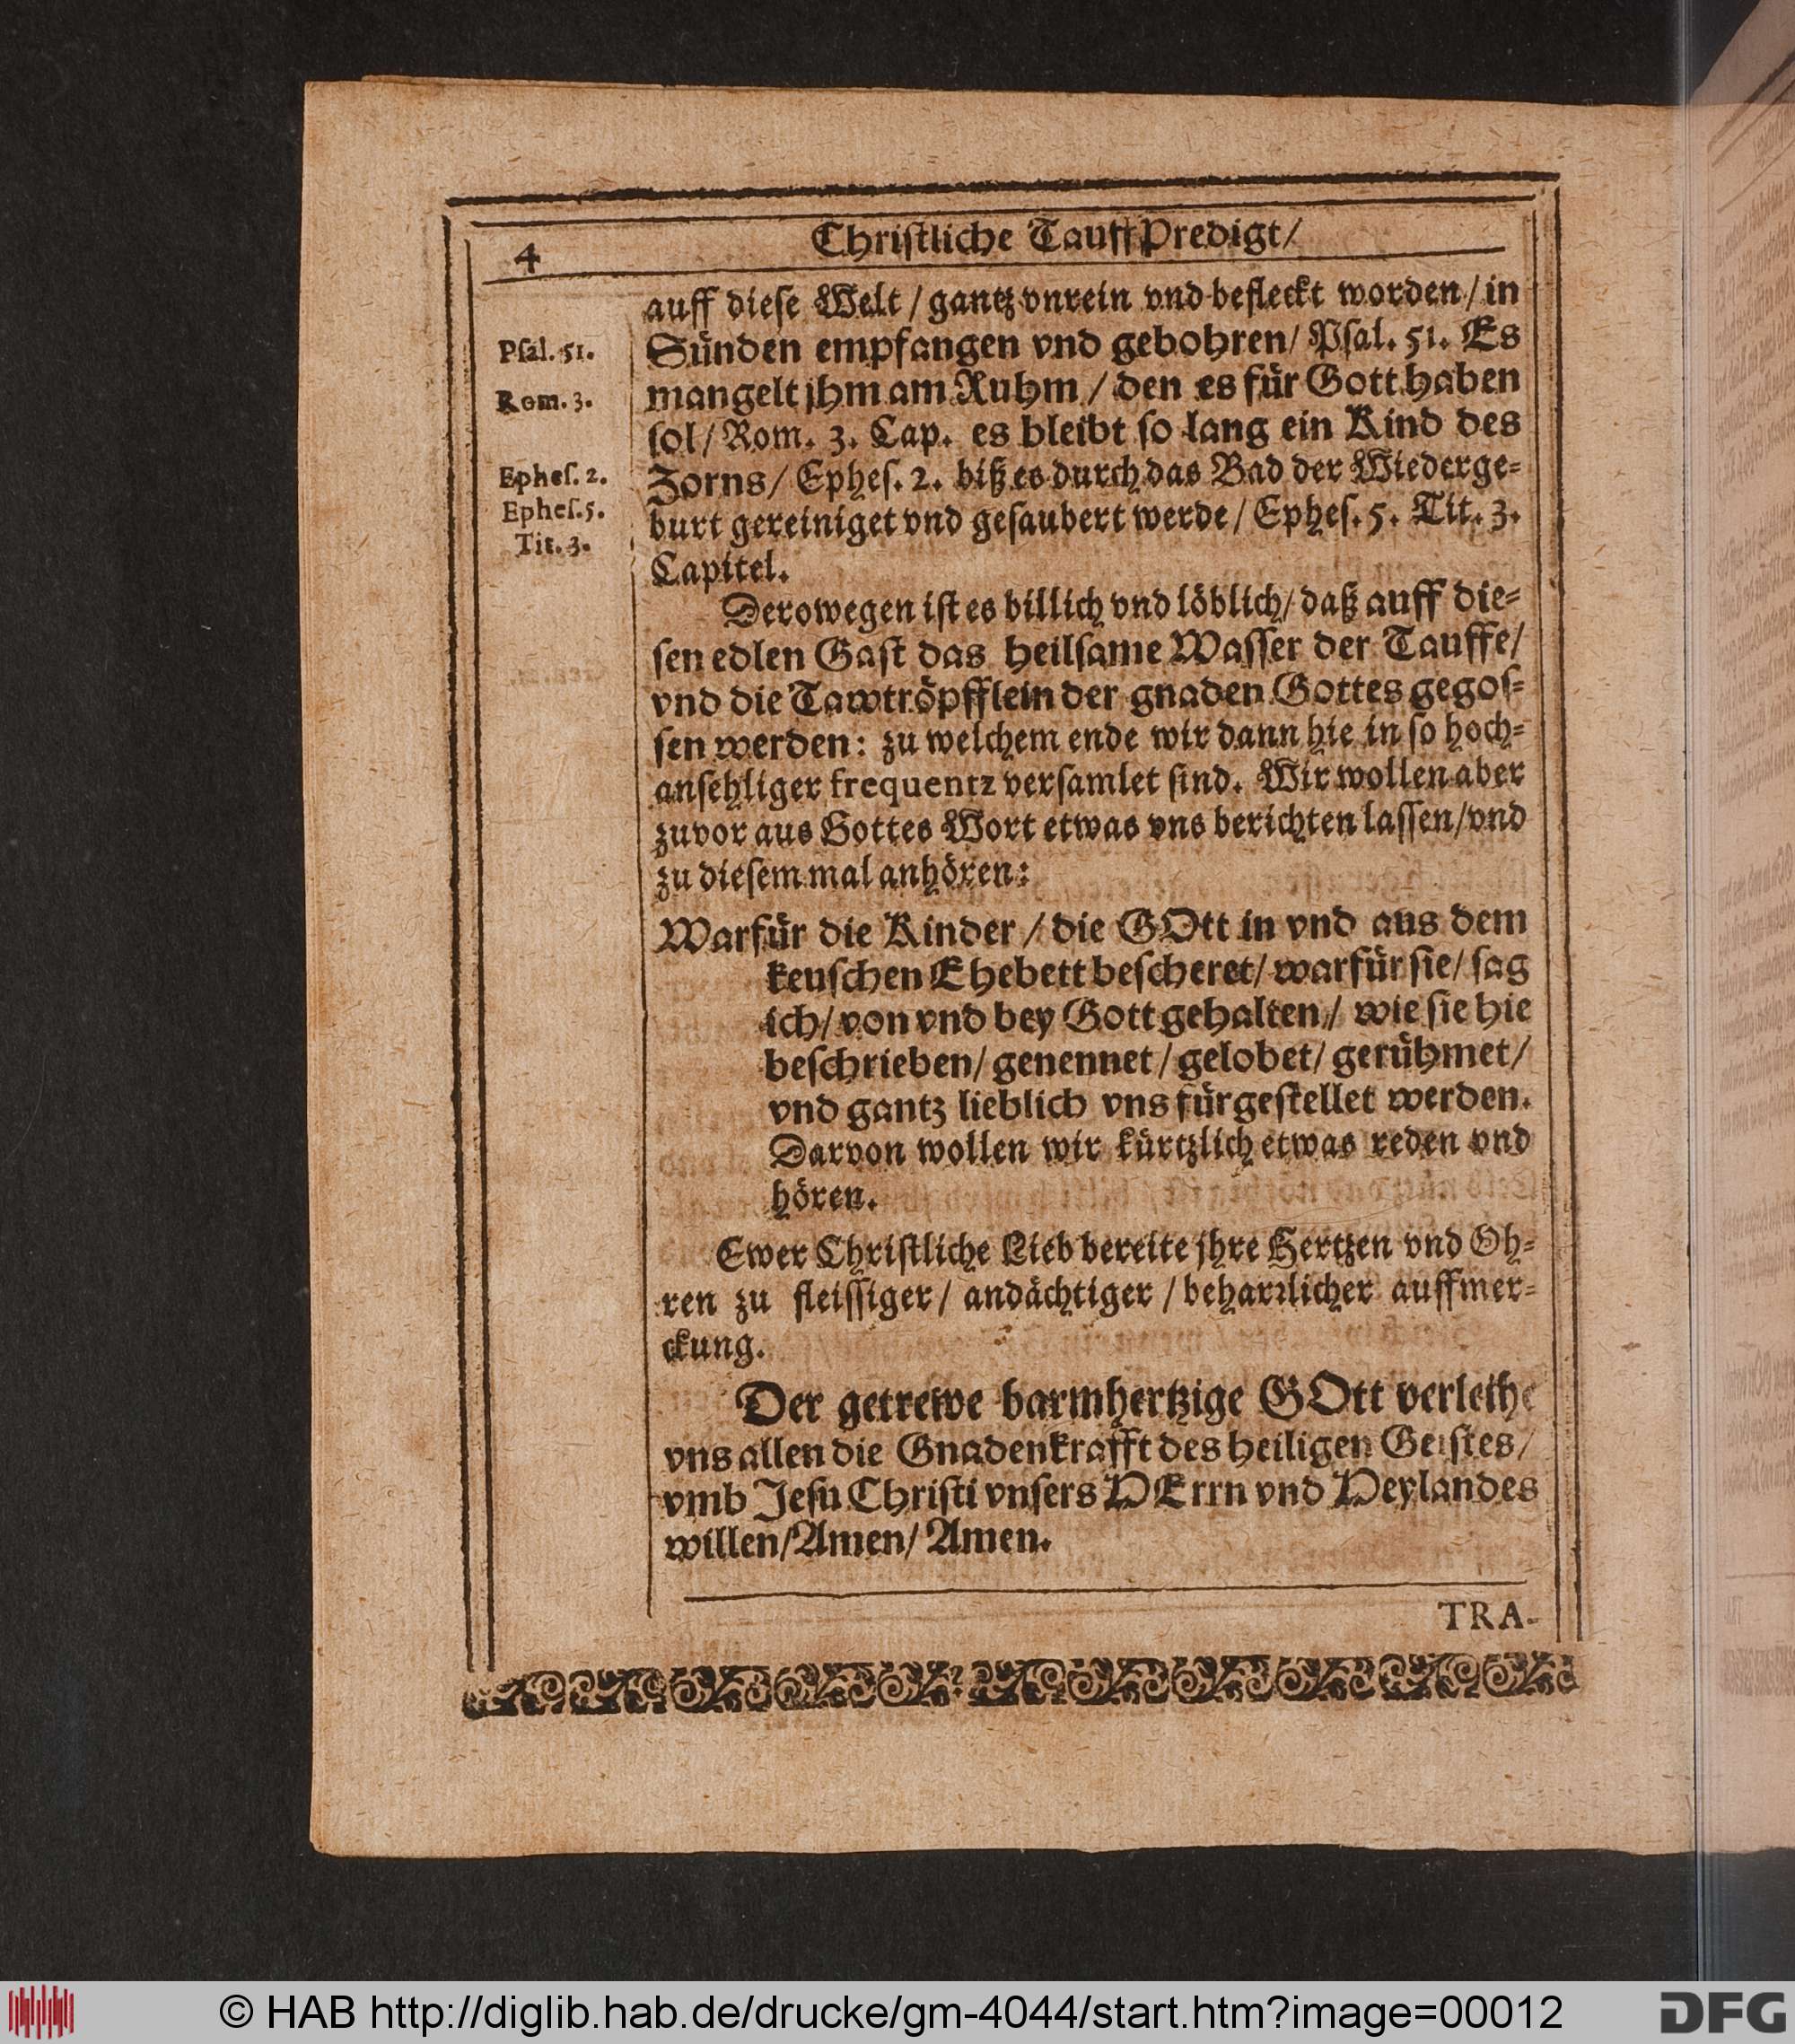 4
Christliche TauffPredigt/
auff diese Welt / gantz vnrein vnd befleckt worden / in
Psal. 51.
Sünden empfangen vnd gebohren/ Psal. 51. Es
Rom. 3.
mangelt jhm am Ruhm / den es für Gott haben
sol / Rom. 3. Cap. es bleibt so lang ein Kind des
Ephes. 2.
Zorns/ Ephes. 2. biß es durch das Bad der Wiederge-
Ephes. 5.
burt gereiniget vnd gesaubert werde / Ephes. 5. Tit. 3.
Tit. 3.
Capitel.
Derowegen ist es billich vnd löblich/ daß auff die-
sen edlen Gast das heilsame Wasser der Tauffe/
vnd die Tawtröpfflein der gnaden Gottes gegos-
sen werden: zu welchem ende wir dann hie in so hoch-
ansehliger frequentz versamlet sind. Wir wollen aber
zuvor aus Gottes Wort etwas vns berichten lassen/vnd
zu diesem mal anhören:
Warfür die Kinder / die GOtt in vnd aus dem
keuschen Ehebett bescheret/ warfür sie/ sag
ich/ von vnd bey Gott gehalten/ wie sie hie
beschrieben/ genennet / gelobet/ gerühmet/
vnd gantz lieblich vns fürgestellet werden.
Darvon wollen wir kürtzlich etwas reden vnd
hören.
Ewer Christliche Lieb bereite jhre Hertzen vnd Oh-
ren zu fleissiger / andächtiger / beharrlicher auffmer-
ckung.
Der getrewe barmhertzige GOtt verleihe
vns allen die Gnadenkrafft des heiligen Geistes/
vmb Jesu Christi vnsers HErrn vnd Heylandes
willen/Amen/ Amen.
TRA-
© HAB http://diglib.hab.de/drucke/gm-4044/start.htm?image=00012
DFG